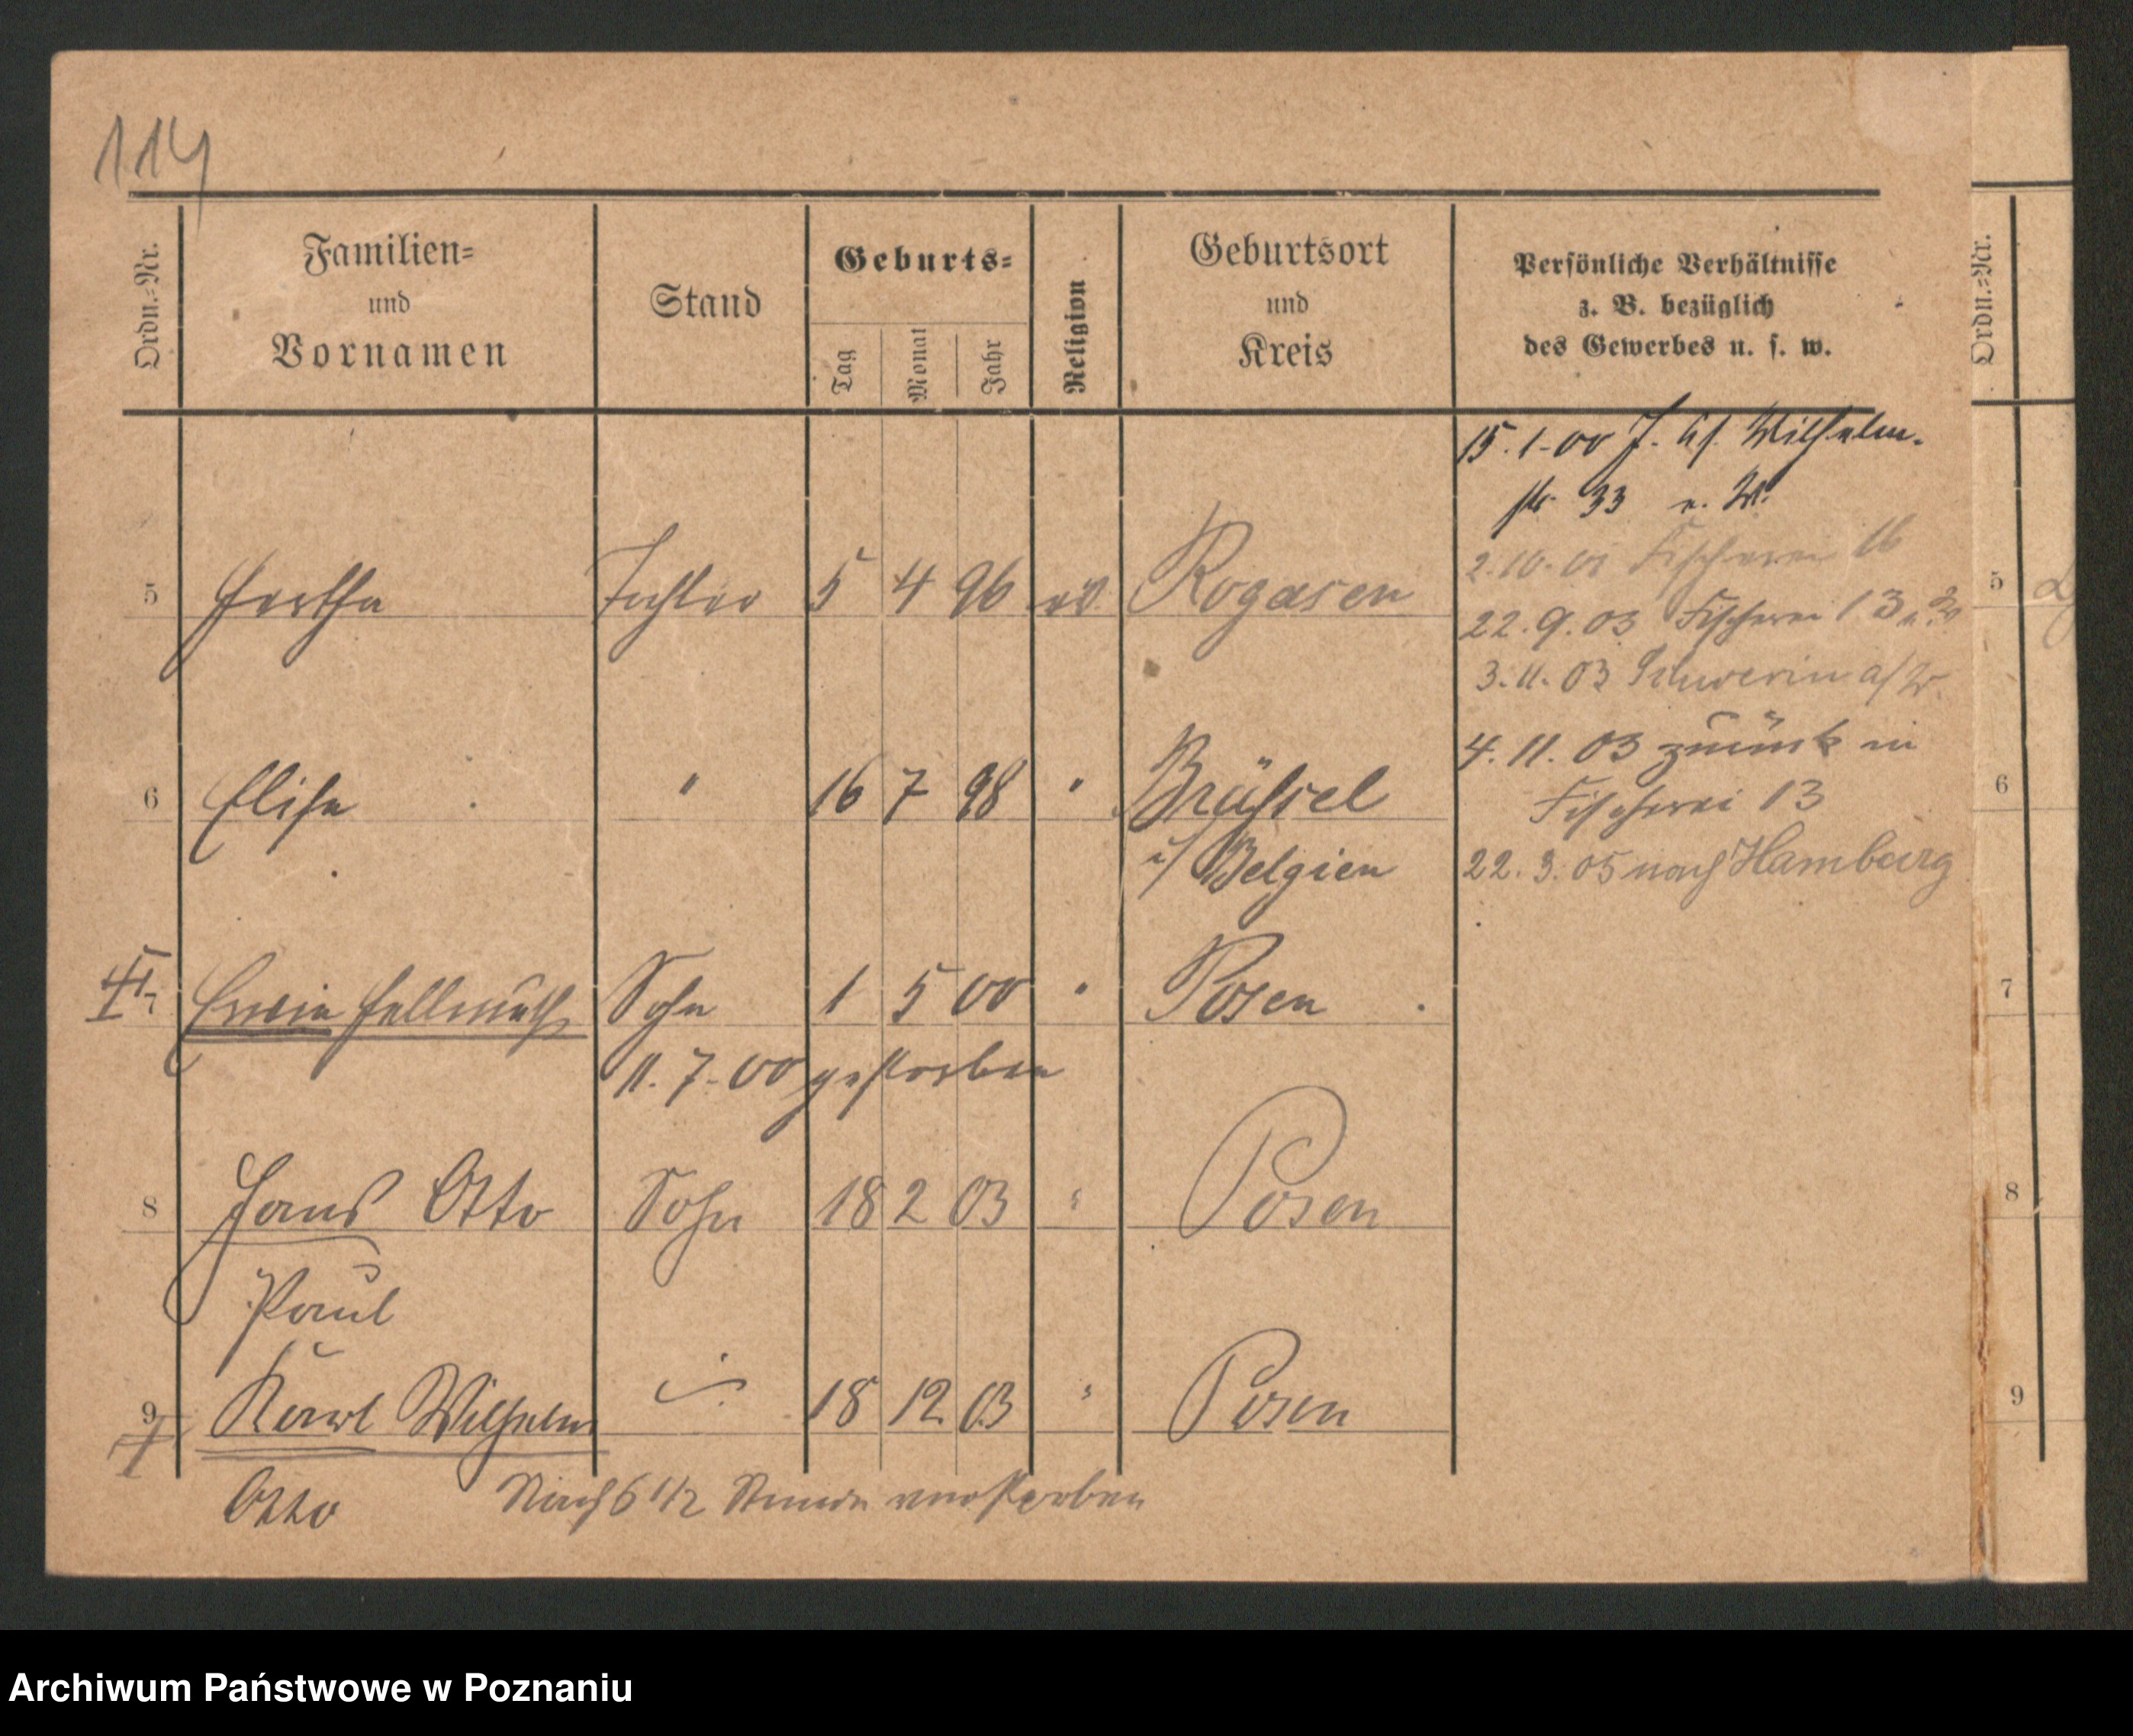 114
Ordn.-Nr.
Familien-
und
Vornamen
Stand
Geburts-
Tag
Monat
Jahr
Religion
Geburtsort
und
Kreis
Persönliche Verhältnisse
z. B. bezüglich
des Gewerbes u. s. w.
Ordn.-Nr.
15.1.00 Wilhelm-
str 33 v. W.
2.10.01 Fischerei 16
5 Hertha Tochter 5 4 96 ev. Rogasen
22.9.03 Fischerei 13
3.11.03 Schwerin a/W.
4.11.03 zurück in
6 Elise " 16 7 98 " Brüssel
Fischerei 13
i/ Belgien
22.3.05 nach Hamburg
7 Erwin Hellmuth Sohn 1 5 00 " Posen
11.7.00 gestorben
8 Hans Otto Sohn 18 2 03 " Posen
Paul
9 Karl Wilhelm 18 12 03 " Posen
Otto Nach 6 1/2 Stunden verstorben
5
6
7
8
9
Archiwum Państwowe w Poznaniu